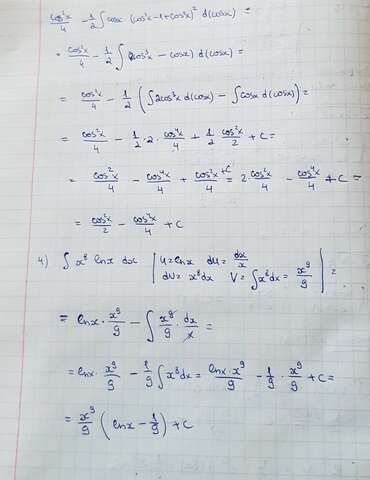 cos²x/4 - 1/2 ∫ cosx (cos²x - 1 + cos²x)² d(cosx) =
= cos²x/4 - 1/2 ∫ (2cos³x - cosx) d(cosx) =
= cos²x/4 - 1/2 (∫ 2cos³x d(cosx) - ∫ cosx d(cosx)) =
= cos²x/4 - 1/2 · 2 · cos⁴x/4 + 1/2 cos²x/2 + C =
= cos²x/4 - cos⁴x/4 + cos²x/4 + C = 2 · cos²x/4 - cos⁴x/4 + C =
= cos²x/2 - cos⁴x/4 + C
4) ∫ x⁸ lnx dx | u = lnx du = dx/x dV = x⁸dx V = ∫ x⁸dx = x⁹/9 | =
= lnx · x⁹/9 - ∫ x⁹/9 · dx/x =
= lnx · x⁹/9 - 1/9 ∫ x⁸dx = lnx · x⁹/9 - 1/9 · x⁹/9 + C =
= x⁹/9 (lnx - 1/9) + C